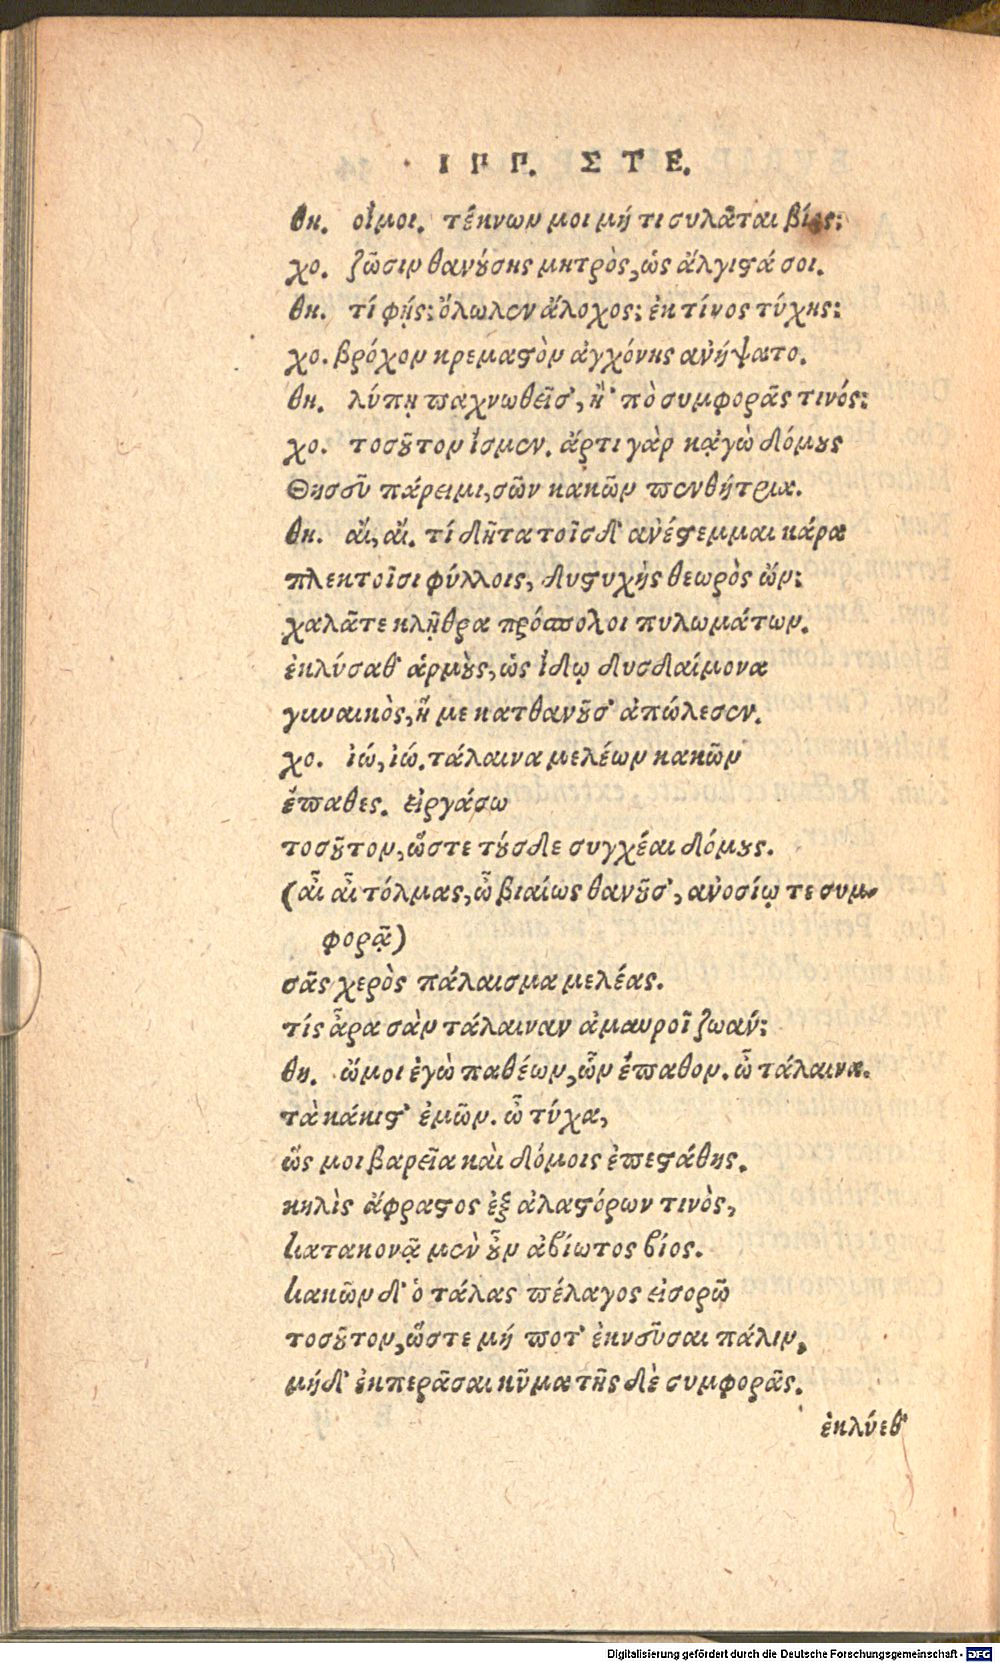 ΙΠΠ. ΣΤΕ.
θη. οἴμοι. τέκνων μοι μή τι συλᾶται βίος;
χο. ζῶσιν θανούσης μητρὸς, ὡς ἄλγιστά σοι.
θη. τί φῄς; ὄλωλεν ἄλοχος; ἐκ τίνος τύχης;
χο. βρόχον κρεμαστὸν ἀγχόνης ἀνήψατο.
θη. λύπῃ παχνωθεῖσ', ἢ 'πὸ συμφορᾶς τινός;
χο. τοσοῦτον ἴσμεν. ἄρτι γὰρ κᾀγὼ δόμους
Θησεῦ πάρειμι, σῶν κακῶν πενθήτρια.
θη. αἴ, αἴ. τί δῆτα τοῖσδ' ἀνέστεμμαι κάρα
πλεκτοῖσι φύλλοις, δυστυχὴς θεωρὸς ὤν;
χαλᾶτε κλῇθρα πρόσπολοι πυλωμάτων.
ἐκλύσαθ' ἁρμοὺς, ὡς ἴδω δυσδαίμονα
γυναικὸς, ἥ με κατθανοῦσ' ἀπώλεσεν.
χο. ἰώ, ἰώ. τάλαινα μελέων κακῶν
ἔπαθες. εἰργάσω
τοσοῦτον, ὥστε τούσδε συγχέαι δόμους.
(αἶ αἶ τόλμας, ὦ βιαίως θανοῦσ', ἀνοσίῳ τε συμ-
φορᾷ)
σᾶς χερὸς πάλαισμα μελέας.
τίς ἆρα σὰν τάλαιναν ἀμαυροῖ ζωάν;
θη. ὤμοι ἐγὼ παθέων, ὧν ἔπαθον. ὦ τάλαινα.
τὰ κάκιστ' ἐμῶν. ὦ τύχα,
ὥς μοι βαρεῖα καὶ δόμοις ἐπεστάθης.
κηλὶς ἄφραστος ἐξ ἀλαστόρων τινὸς,
κατακονᾷ μὲν οὖν ἀβίωτος βίος.
κακῶν δ' ὁ τάλας πέλαγος εἰσορῶ
τοσοῦτον, ὥστε μή ποτ' ἐκνεῦσαι πάλιν,
μήδ' ἐκπερᾶσαι κῦμα τῆς δὲ συμφορᾶς.
ἐκλύεθ'
Digitalisierung gefördert durch die Deutsche Forschungsgemeinschaft - DFG